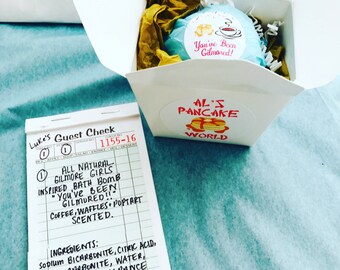 You've Been
Gilmored!
AL'S PANCAKE
WORLD
LUKE'S Guest Check
1 1 1155-16
1 ALL NATURAL
GILMORE GIRLS
INSPIRED BATH BOMB
"YOU'VE BEEN
GILMORED!!"
COFFEE, WAFFLES & POPTART
SCENTED.
INGREDIENTS:
SODIUM BICARBONITE, CITRIC ACID,
WATER,